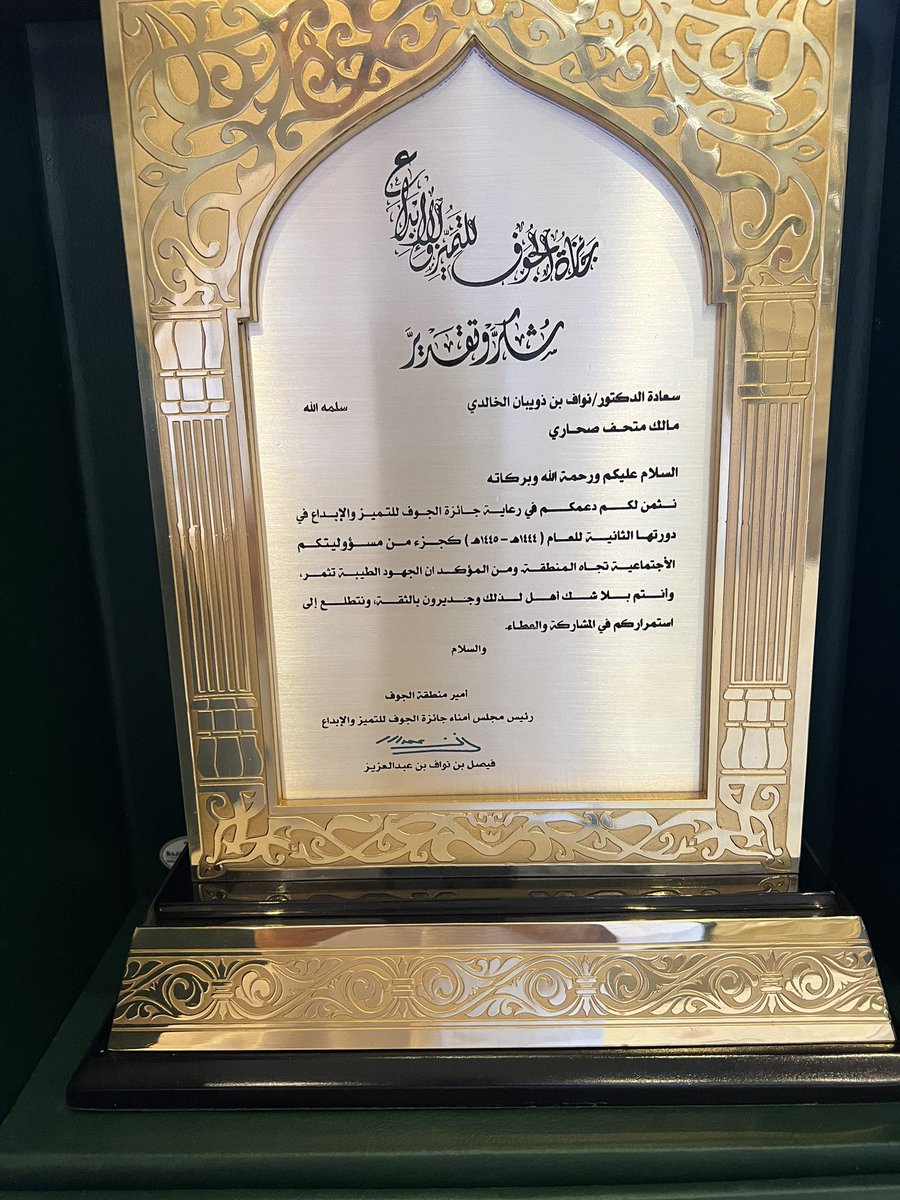 جائزة الجوف للتميز والإبداع
شكر وتقدير
سعادة الدكتور/نواف بن ذويبان الخالدي سلمه الله
مالك متحف صحاري
السلام عليكم ورحمة الله وبركاته
نثمن لكم دعمكم في رعاية جائزة الجوف للتميز والإبداع في
دورتها الثانية للعام ( ١٤٤٤هـ - ١٤٤٥هـ ) كجزء من مسؤوليتكم
الأجتماعية تجاه المنطقة، ومن المؤكد ان الجهود الطيبة تثمر،
وأنتم بلا شك أهل لذلك وجديرون بالثقة، ونتطلع إلى
استمراركم في المشاركة والعطاء.
والسلام
أمير منطقة الجوف
رئيس مجلس أمناء جائزة الجوف للتميز والإبداع
فيصل بن نواف بن عبدالعزيز